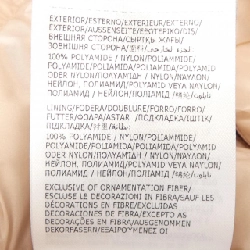 EXTERIOR/ESTERNO/EXTERIEUR/EXTERNO/
EXTERIOR/AUSSENSEITE/ΕΞΩΤΕΡΙΚΟ/DIŞ/
ВНЕШНЯЯ СТОРОНА/СЫРТҚЫ ЖАҒЫ/
ЗОВНІШНЯ СТОРОНА/
100% POLYAMIDE / NYLON/POLIAMMIDE/
POLYAMIDE/POLIAMIDA/POLIAMIDA/POLYAMID
ODER NYLON/ΠΟΛΥΑΜΙΔΗ / NYLON/NAYLON/
НЕЙЛОН, ПОЛИАМИД/POLYAMID VEYA NAYLON/
ПОЛИАМИД / НЕЙЛОН/ПОЛІАМІД /
LINING/FODERA/DOUBLURE/FORRO/FORRO/
FUTTER/ΦΟΔΡΑ/ASTAR /ПОДКЛАДКА/
ПІДКЛАДКА/
100% POLYAMIDE / NYLON/POLIAMMIDE/
POLYAMIDE/POLIAMIDA/POLIAMIDA/POLYAMID
ODER NYLON/ΠΟΛΥΑΜΙΔΗ / NYLON/NAYLON/
НЕЙЛОН, ПОЛИАМИД/POLYAMID VEYA NAYLON/
ПОЛИАМИД / НЕЙЛОН/ПОЛІАМІД /
EXCLUSIVE OF ORNAMENTATION FIBER/
ESCLUSE LE DECORAZIONI IN FIBRA/SAUF LES
DÉCORATIONS EN FIBRE/EXCLUIDAS
DECORACIONES DE FIBRA/EXCEPTO AS
DECORAÇÕES EM FIBRA/AUSGENOMMEN